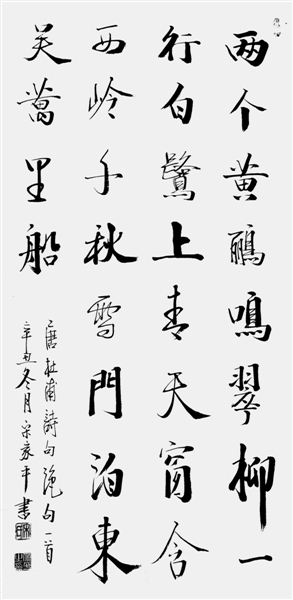 两个黄鸝鳴翠柳一
行白鷺上青天窗含
西岭千秋雪門泊東
吴萬里船
唐杜甫詩句绝句一首
辛丑冬月家平書